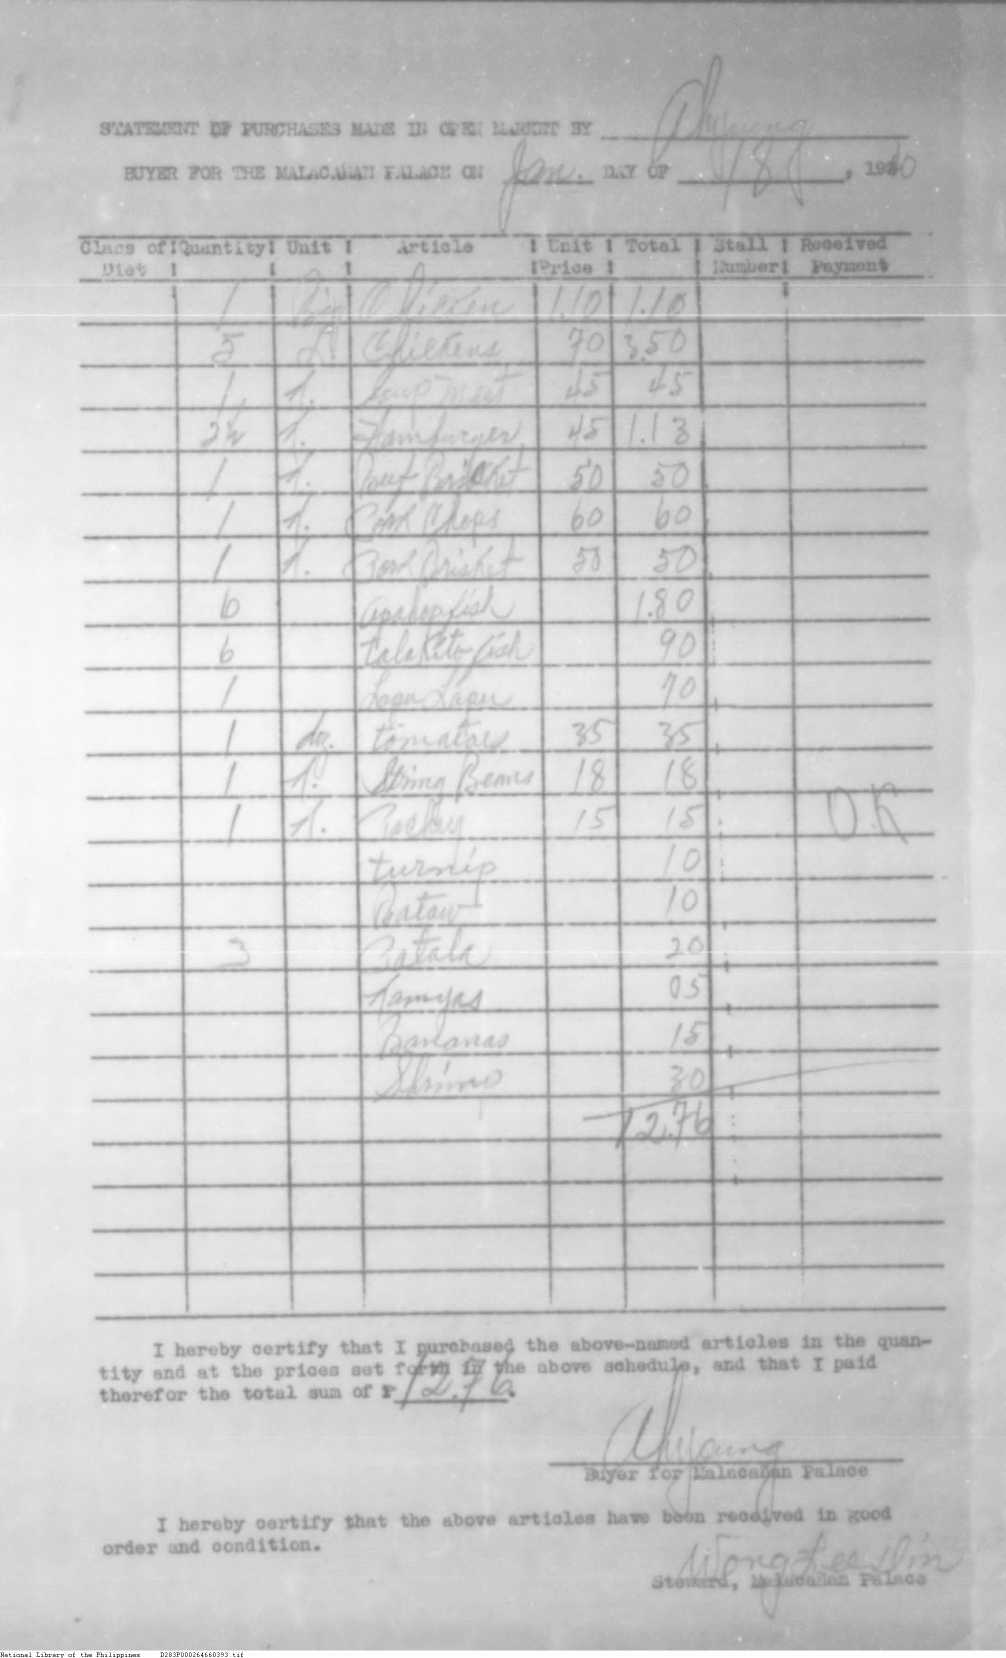 STATEMENT OF PURCHASES MADE IN OPEN MARKET BY Ahyoung
BUYER FOR THE MALACAÑAN PALACE ON Jan. DAY OF 18, 1940
Class of Diet Quantity Unit Article Unit Price Total Stall Number Received Payment
1 Big Chicken 1.10 1.10
5 L Chickens 70 3.50
1 k. Soup Meat 45 45
2½ k. Hamburger 45 1.13
1 k. Beef Brisket 50 50
1 k. Pork Chops 60 60
1 k. Pork Brisket 50 50
6 Apahap fish 1.80
6 Talakito fish 90
1 Lapu Lapu 70
1 dz. tomatoes 35 35
1 k. String Beans 18 18
1 k. 15 15 O.K
turnip 10
Bataw 10
3 Patola 20
Kamyas 05
Bananas 15
Shrimp 30
12.76
I hereby certify that I purchased the above-named articles in the quan-
tity and at the prices set forth in the above schedule, and that I paid
therefor the total sum of ₱12.76.
Ahyoung
Buyer for Malacañan Palace
I hereby certify that the above articles have been received in good
order and condition.
Wong
Steward, Malacañan Palace
National Library of the Philippines D283P000264660393.tif